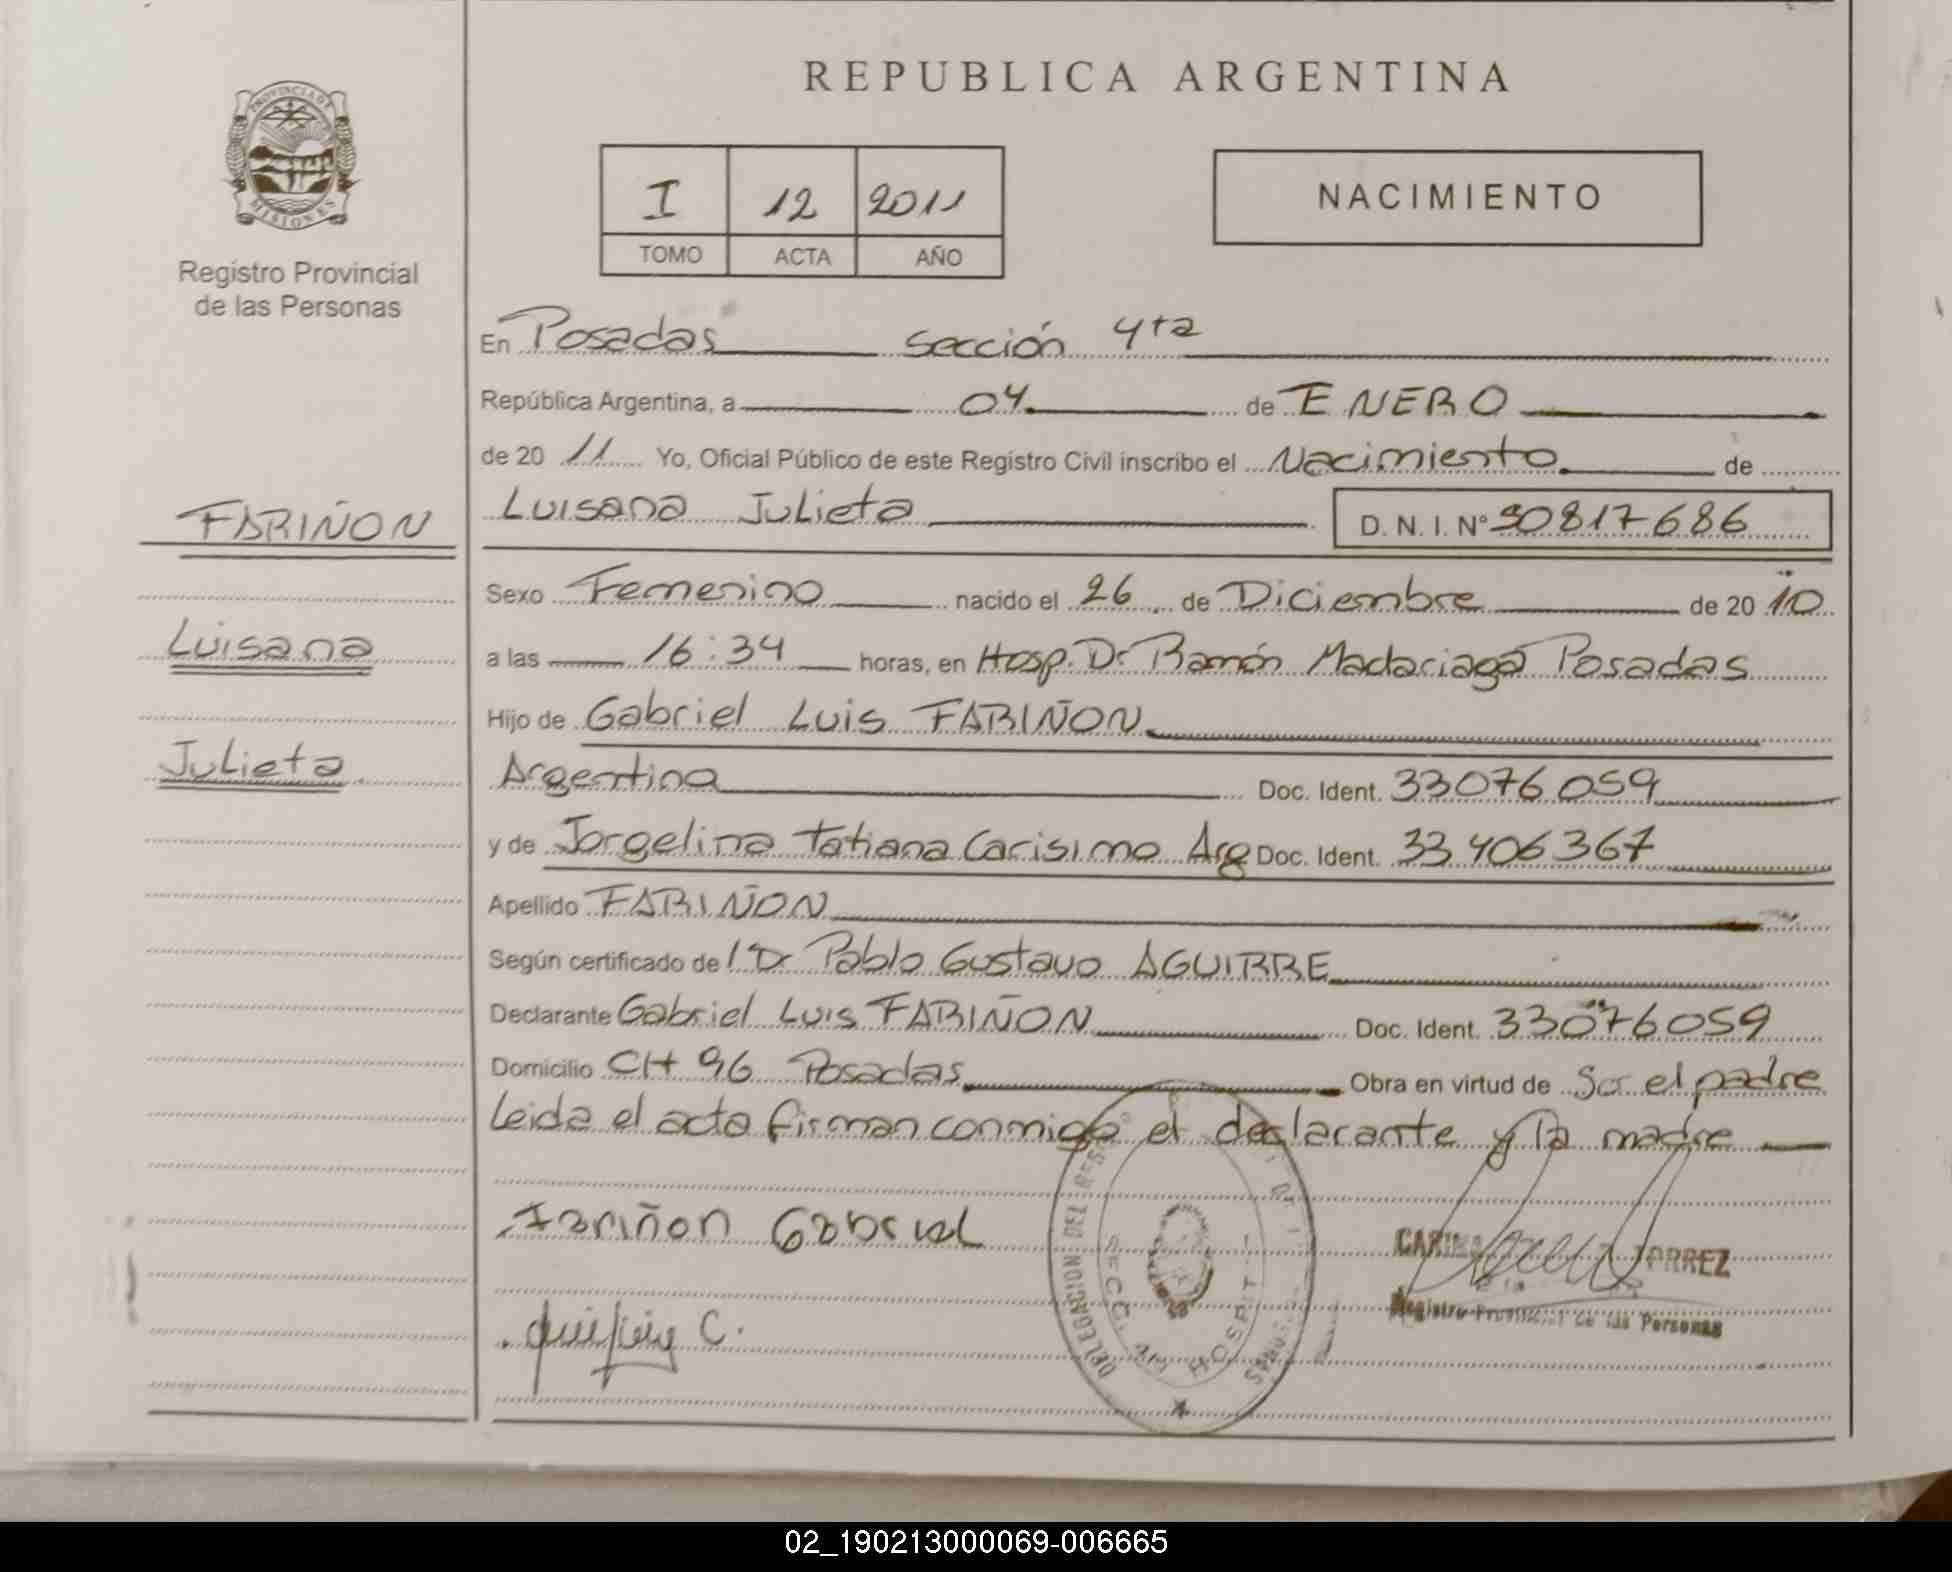 REPUBLICA ARGENTINA
PROVINCIA DE
MISIONES
Registro Provincial
de las Personas
I 12 2011
TOMO ACTA AÑO
NACIMIENTO
En Posadas Sección 4ta
República Argentina, a 04 de ENERO
de 20 11 Yo, Oficial Público de este Registro Civil inscribo el Nacimiento de
FARIÑON
Luisana Julieta D. N. I. Nº 50817686
Sexo Femenino nacido el 26 de Diciembre de 20 10
Luisana
a las 16:34 horas, en Hosp. Dr Ramón Madariaga Posadas
Hijo de Gabriel Luis FARIÑON
Julieta
Argentina Doc. Ident. 33076059
y de Jorgelina Tatiana Carisimo Arg Doc. Ident. 33406367
Apellido FARIÑON
Según certificado de l Dr Pablo Gustavo AGUIRRE
Declarante Gabriel Luis FARIÑON Doc. Ident. 33076059
Domicilio CH 96 Posadas Obra en virtud de Ser el padre
Leida el acta firman conmigo el declarante y la madre
Fariñon Gabriel
DELEGACION DEL
HOSPIT
Registro Provincial de las Personas
C.
02_190213000069-006665